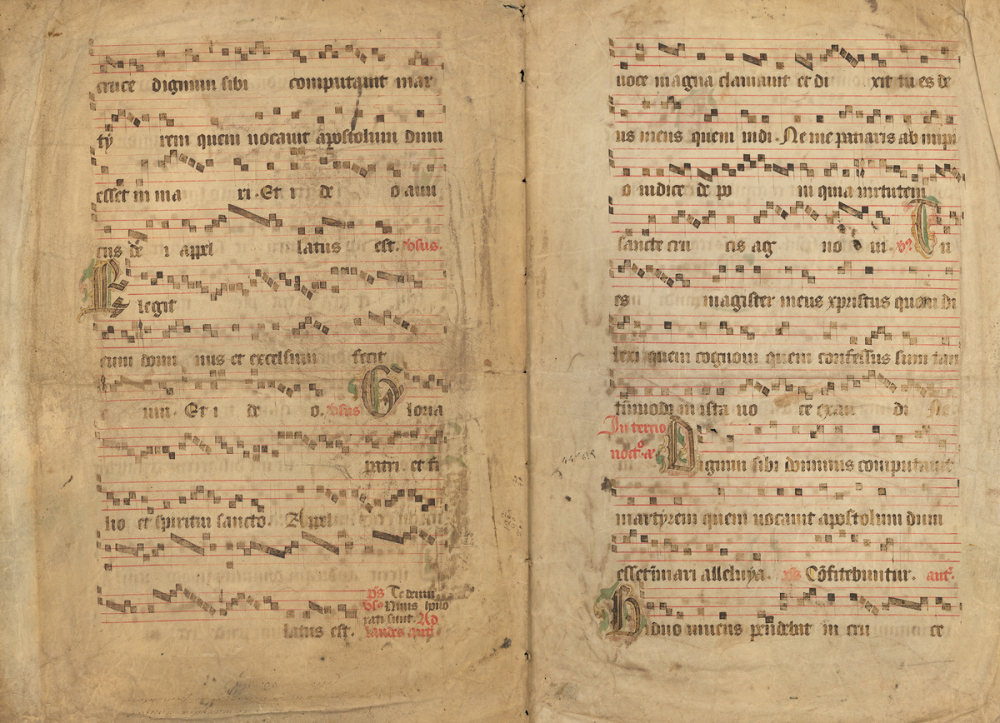 cruce dignum sibi computauit mar
ty rem quem uocauit apostolum dum
esset in ma ri. Et i de o ami
cus de i appel latus est. ℣sus.
E legit
eum domi nus et excelsum fecit
mi. Et i de o. ℣sus G loria
patri. et fi
lio et spiritui sancto. Appl
latus est.
ps Te deum
Nimis hono
rati sunt. Ad
laudes ant.
uoce magna clamauit et di xit tu es de
us meus quem uidi. Ne me patiaris ab impi
o iudice de po ni quia uirtutem
sancte cru cis ag no ui. ℣. T u
es magister meus xpristus quem di
lexi quem cognoui quem confessus sum tan
tummodo in ista uo ce exau di Ne
In tercio
noct. a
Dignum sibi dominus computauit
martyrem quem uocauit apostolum dum
esset in mari alleluya. ps Cōfitebuntur. ant.
Biduo uiuens pendebat in cru ce